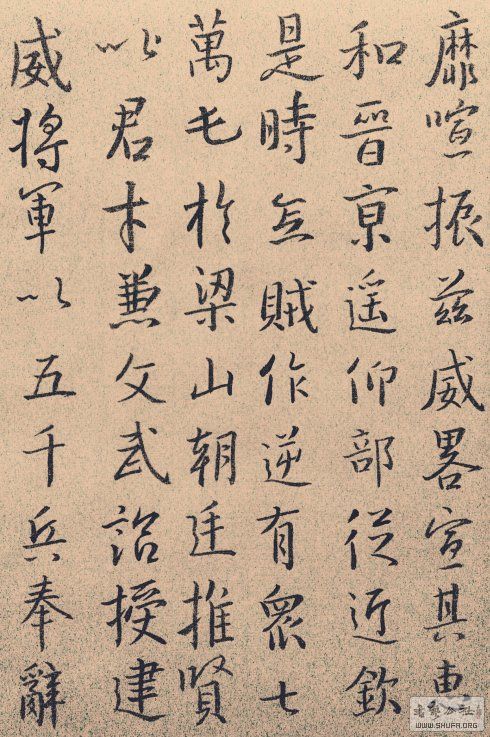 靡喧振茲威畧宣其惠
和晉京遥仰部從近欽
是時氐賊作逆有衆七
萬屯於梁山朝廷推賢
以君才兼文武詔授建
威將軍以五千兵奉辭
WWW.SHUFA.ORG